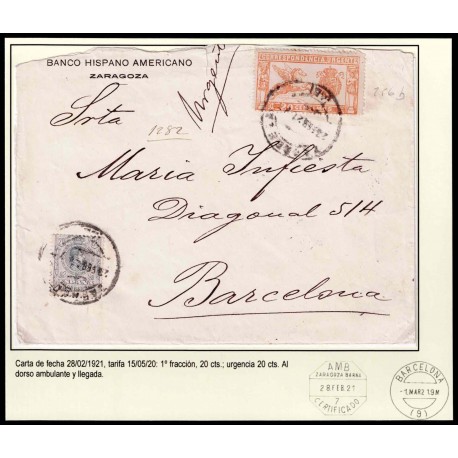 BANCO HISPANO AMERICANO
ZARAGOZA
Urgente
CORRESPONDENCIA URGENTE
256 b
Srta
1282
Maria Infiesta
Diagonal 514
Barcelona
Carta de fecha 28/02/1921, tarifa 15/05/20: 1ª fracción, 20 cts.; urgencia 20 cts. Al
dorso ambulante y llegada.
AMB
ZARAGOZA BARNA
28 FEB. 21
7
CERTIFICADO
BARCELONA
-1.MAR2 1 9M
(9)